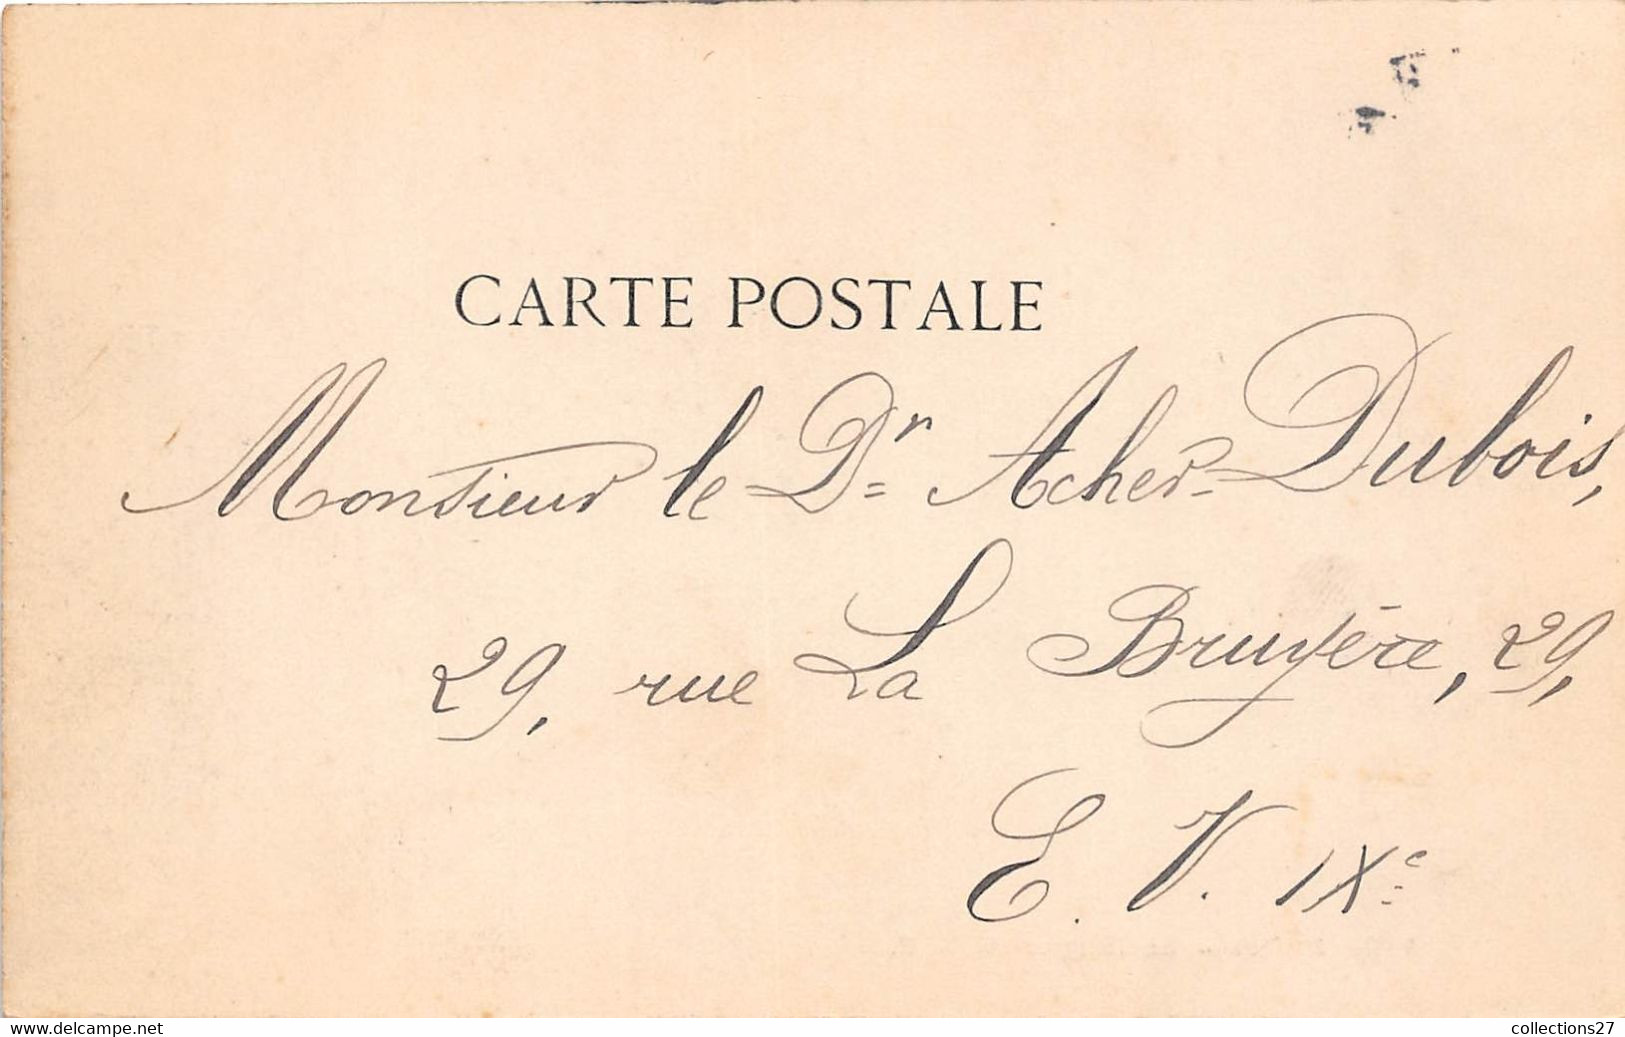 CARTE POSTALE
Monsieur le Dr Acher-Dubois,
29, rue La Bruyère, 29,
E. V. IXe
www.delcampe.net
collections27